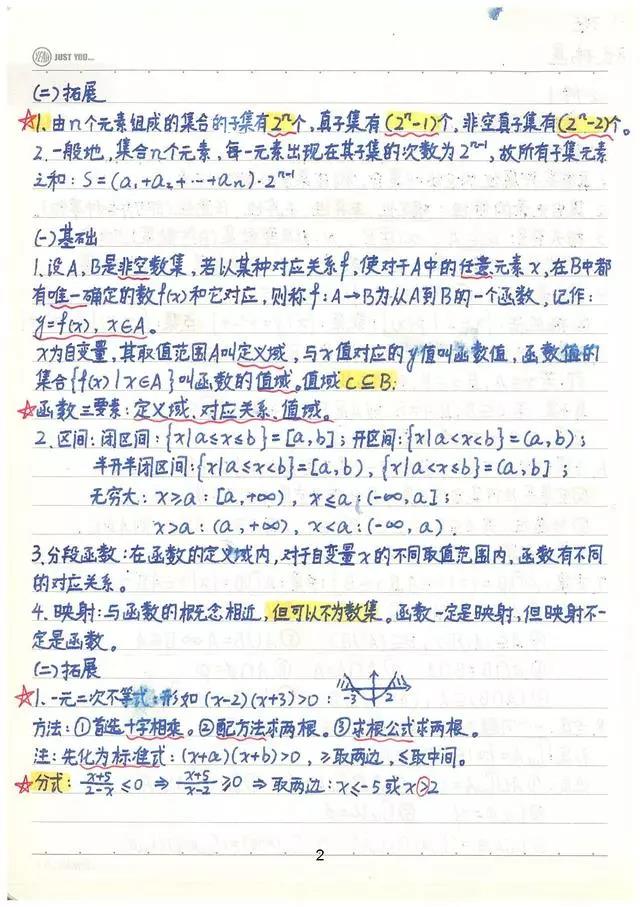 YEAH JUST YOU...
(二)拓展
☆1.由n个元素组成的集合的子集有2ⁿ个,真子集有(2ⁿ-1)个,非空真子集有(2ⁿ-2)个。
2.一般地,集合n个元素,每一元素出现在其子集的次数为2ⁿ⁻¹,故所有子集元素
之和:S=(a₁+a₂+…+aₙ)·2ⁿ⁻¹
(一)基础
1.设A,B是非空数集,若以某种对应关系f,使对于A中的任意元素x,在B中都
有唯一确定的数f(x)和它对应,则称f:A→B为从A到B的一个函数,记作:
y=f(x),x∈A。
x为自变量,其取值范围A叫定义域,与x值对应的y值叫函数值,函数值的
集合{f(x)|x∈A}叫函数的值域。值域C⊆B.
☆函数三要素:定义域、对应关系、值域。
2.区间:闭区间:{x|a≤x≤b}=[a,b];开区间:{x|a<x<b}=(a,b);
半开半闭区间:{x|a≤x<b}=[a,b),{x|a<x≤b}=(a,b];
无穷大:x≥a:[a,+∞),x≤a:(-∞,a];
x>a:(a,+∞),x<a:(-∞,a)
3.分段函数:在函数的定义域内,对于自变量x的不同取值范围内,函数有不同
的对应关系。
4.映射:与函数的概念相近,但可以不为数集。函数一定是映射,但映射不一
定是函数。
(二)拓展
☆1.一元二次不等式:形如(x-2)(x+3)>0: -3 2
方法:①首选十字相乘。②配方法求两根。③求根公式求两根。
注:先化为标准式:(x+a)(x+b)>0,≥取两边,≤取中间。
☆分式:(x+5)/(2-x)≤0⇒(x+5)/(x-2)≥0⇒取两边:x≤-5或x>2
2